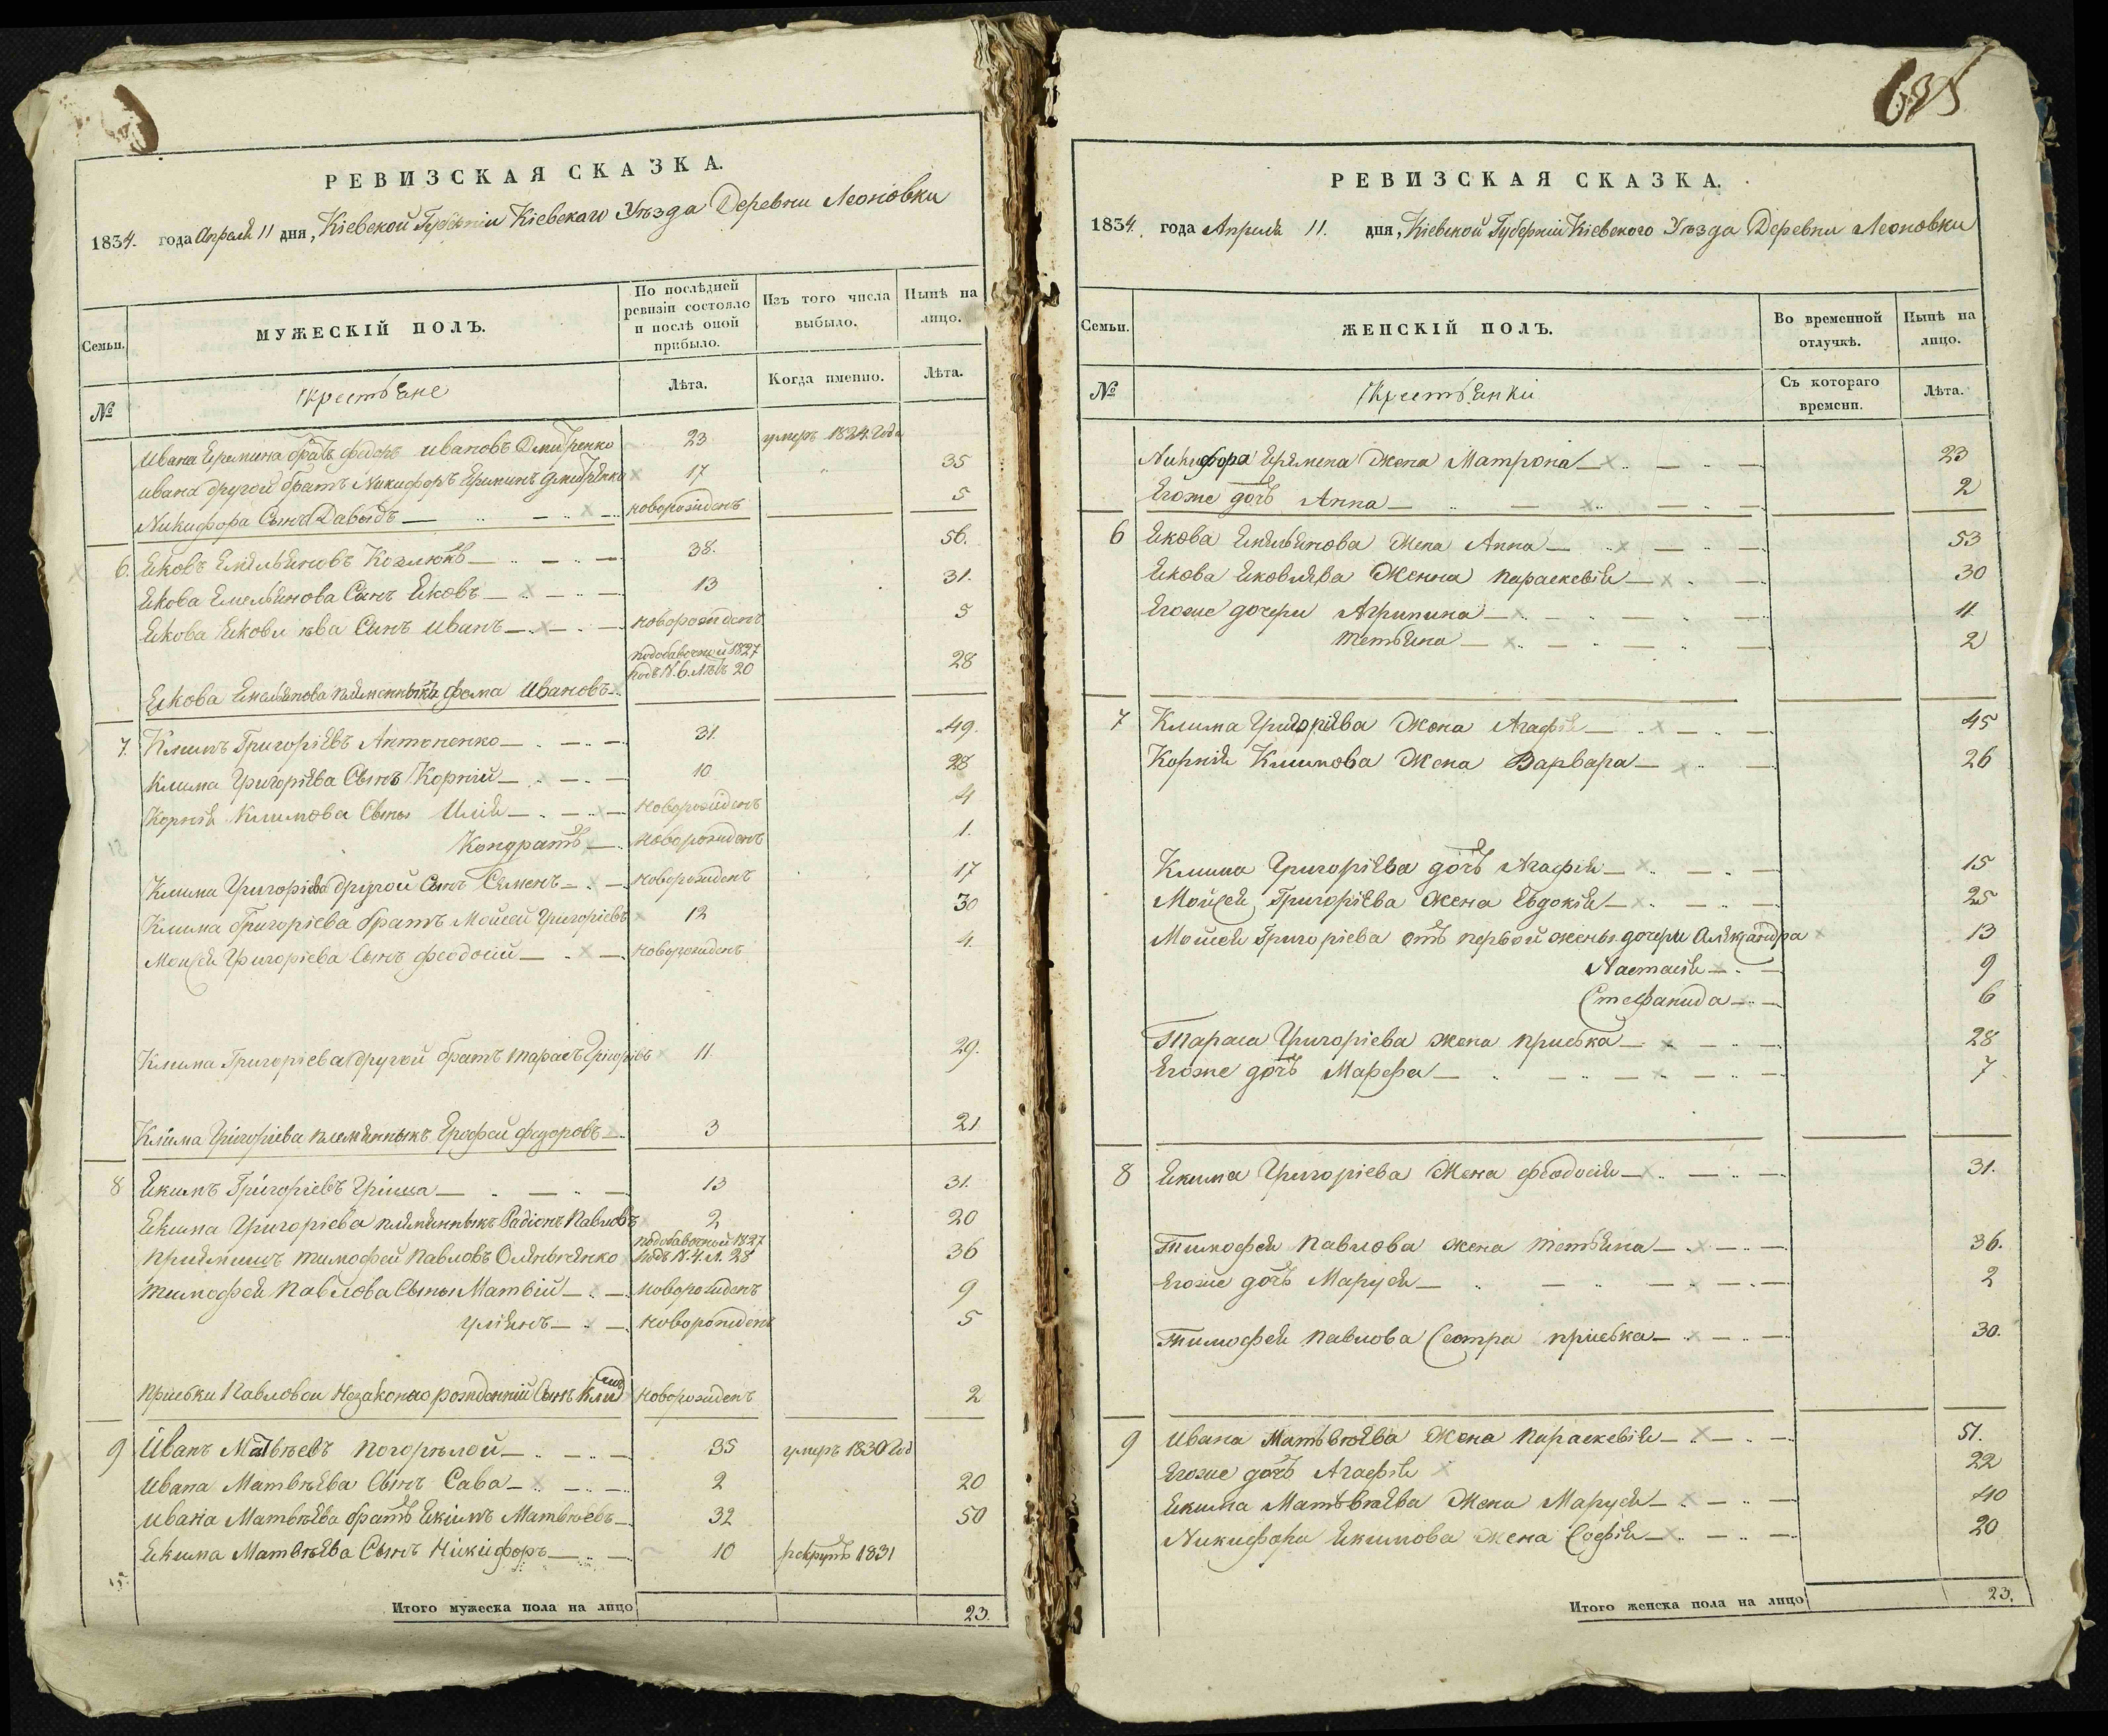 685
РЕВИЗСКАЯ СКАЗКА.
1834. года Апреля 11 дня, Кіевской Губерніи Кіевскаго Уѣзда Деревни Леоновки
Семьи.
МУЖЕСКІЙ ПОЛЪ.
По послѣдней ревизіи состояло и послѣ оной прибыло.
Изъ того числа выбыло.
Нынѣ на лицо.
№
Крестьяне
Лѣта.
Когда именно.
Лѣта.
Ивана Еремина братъ Федоръ Ивановъ Дмитренко 23 умеръ 1824. Года
Ивана другой братъ Никифоръ Ереминъ Дмитренко 17 " 35
Никифора Сынъ Давыдъ новорожденъ 5
6. Яковъ Емельяновъ Козлюкъ 38. 56.
Якова Емельянова Сынъ Яковъ 13 31.
Якова Яковлѣва Сынъ Иванъ новорожденъ 5
Якова Емельянова племянныкъ Фома Ивановъ подобавочной 1827 подъ N. 6. лѣтъ 20 28
7. Климъ Григоріевъ Антоненко 31. 49.
Клима Григоріева Сынъ Корній 10 28
Корнія Климова Сыны Илія новорожденъ 4
Кондратъ новорожденъ 1.
Клима Григоріева другой Сынъ Семенъ новорожденъ 17
Клима Григоріева братъ Мойсей Григоріевъ 12 30
Мойсея Григоріева Сынъ Феодосій новорожденъ 4.
Клима Григоріева другой братъ Тарасъ Григоріевъ 11 29.
Клима Григоріева племянныкъ Ерофей Федоровъ 3 21
8 Якимъ Григоріевъ Гриша 13 31.
Якима Григоріева племянныкъ Радіонъ Павловъ 2 20
Приямышъ Тимофей Павловъ подобавочной 1827 подъ N. 4. л. 28 36
Тимофея Павлова Сыны Матвій новорожденъ 9
Уліянъ новорожденъ 5
Приськи Павловой Незаконно рожденній Сынъ новорожденъ 2
9 Иванъ Матвѣевъ Погорѣлой 35 умеръ 1830 Год
Ивана Матвѣева Сынъ Сава 2 20
Ивана Матвѣева братъ Якимъ Матвѣевъ 32 50
Якима Матвѣева Сынъ Никифоръ 10 рекрутъ 1831
15.
Итого мужеска пола на лицо 23.
РЕВИЗСКАЯ СКАЗКА.
1834. года Апреля 11. дня, Кіевской Губерніи Кіевского Уѣзда Деревни Леоновки
Семьи.
ЖЕНСКІЙ ПОЛЪ.
Во временной отлучкѣ.
Нынѣ на лицо.
№
Крестьянки
Съ котораго времени.
Лѣта.
Никифора Еремена Жена Матрона 23
Егоже дочь Анна 2
6 Якова Емельянова Жена Анна 53
Якова Яковлева Женна Параскевія 30
Егоже дочери Агрипина 11
Тетьяна 2
7 Клима Григоріева Жена Агафія 45
Корнія Климова Жена Варвара 26
Клима Григоріева дочь Агафія 15
Мойсея Григоріева Жена Евдокія 25
Мойсея Григоріева отъ первой жены дочери Александра 13
Настасія 9
Стефанида 6
Тараса Григоріева жена Приська 28
Егоже дочь Марфа 7
8 Якима Григоріева Жена Феодосія 31.
Тимофея Павлова жена Тетьяна 36.
Егоже дочь Маруся 2
Тимофея Павлова Сестра Приська 30.
9 Ивана Матвѣева Жена Параскевія 51.
Егоже дочь Агафія 22
Якима Матвѣева Жена Маруся 40
Никифора Якимова жена Софія 20
Итого женска пола на лицо 23.